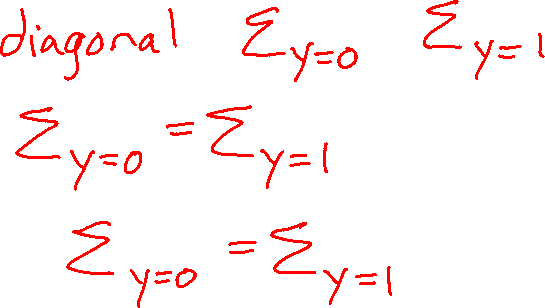 diagonal Σ_{y=0} Σ_{y=1}
Σ_{y=0} = Σ_{y=1}
Σ_{y=0} = Σ_{y=1}